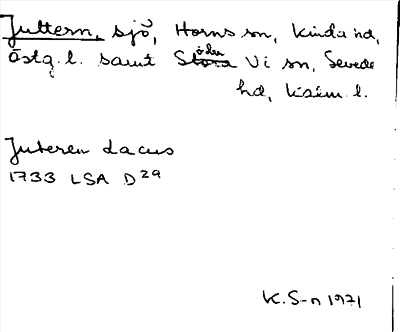 Juttern, sjö, Horns sn, Kinda hd,
Östg. l. samt Södra Vi sn, Sevede
hd, Kalm. l.
Juteren lacus
1733 LSA D 29
K. S-n 1971